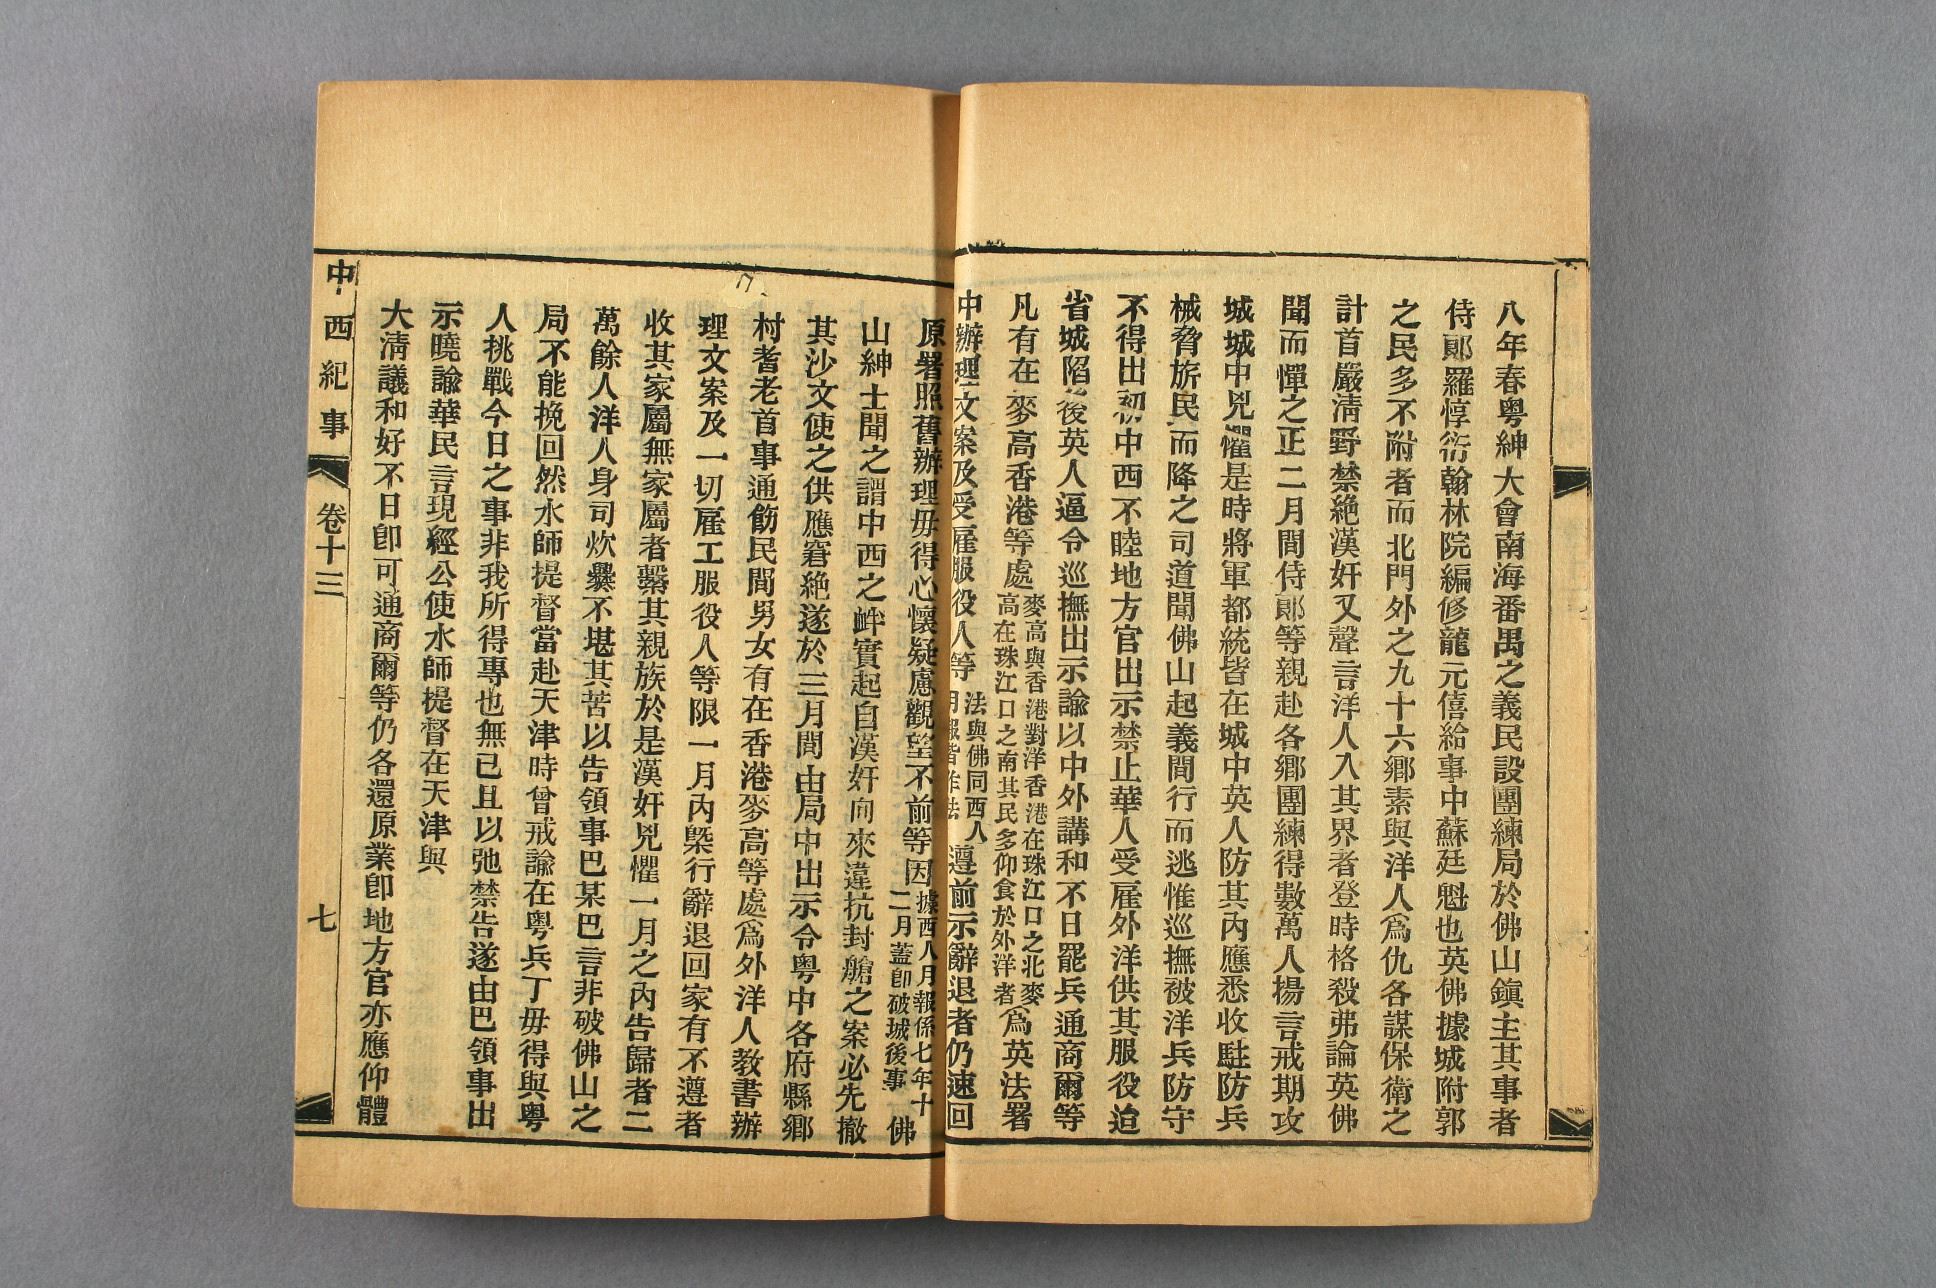 八年春粤紳大會南海番禺之義民設團練局於佛山鎮主其事者
侍郞羅惇衍翰林院編修龍元僖給事中蘇廷魁也英佛據城附郭
之民多不附者而北門外之九十六鄕素與洋人爲仇各謀保衛之
計首嚴淸野禁絶漢奸又聲言洋人入其界者登時格殺弗論英佛
聞而憚之正二月間侍郞等親赴各鄕團練得數萬人揚言戒期攻
城城中兇懼是時將軍都統皆在城中英人防其內應悉收駐防兵
械脅旂民而降之司道聞佛山起義間行而逃惟巡撫被洋兵防守
不得出初中西不睦地方官出示禁止華人受雇外洋供其服役迨
省城陷後英人逼令巡撫出示諭以中外講和不日罷兵通商爾等
凡有在麥高香港等處麥高與香港對洋香港在珠江口之北麥高在珠江口之南其民多仰食於外洋者爲英法署
中辦理文案及受雇服役人等法與佛同西人月報皆作法遵前示辭退者仍速回
原署照舊辦理毋得心懷疑慮觀望不前等因據西人月報係七年十二月蓋卽破城後事佛
山紳士聞之謂中西之衅實起自漢奸向來違抗封艙之案必先撤
其沙文使之供應窘絶遂於三月間由局中出示令粤中各府縣鄕
村耆老首事通飭民間男女有在香港麥高等處爲外洋人教書辦
理文案及一切雇工服役人等限一月內槩行辭退回家有不遵者
收其家屬無家屬者繫其親族於是漢奸兇懼一月之內告歸者二
萬餘人洋人身司炊爨不堪其苦以告領事巴某巴言非破佛山之
局不能挽回然水師提督當赴天津時曾戒諭在粤兵丁毋得與粤
人挑戰今日之事非我所得專也無已且以弛禁告遂由巴領事出
示曉諭華民言現經公使水師提督在天津與
大淸議和好不日卽可通商爾等仍各還原業卽地方官亦應仰體
中西紀事
卷十三
七